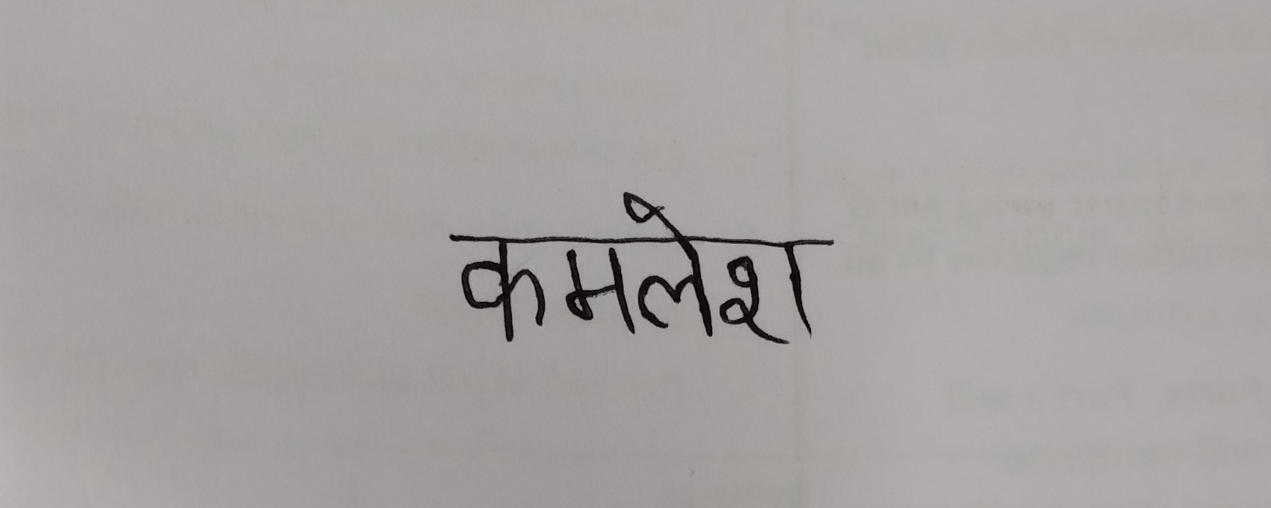 कमलेश